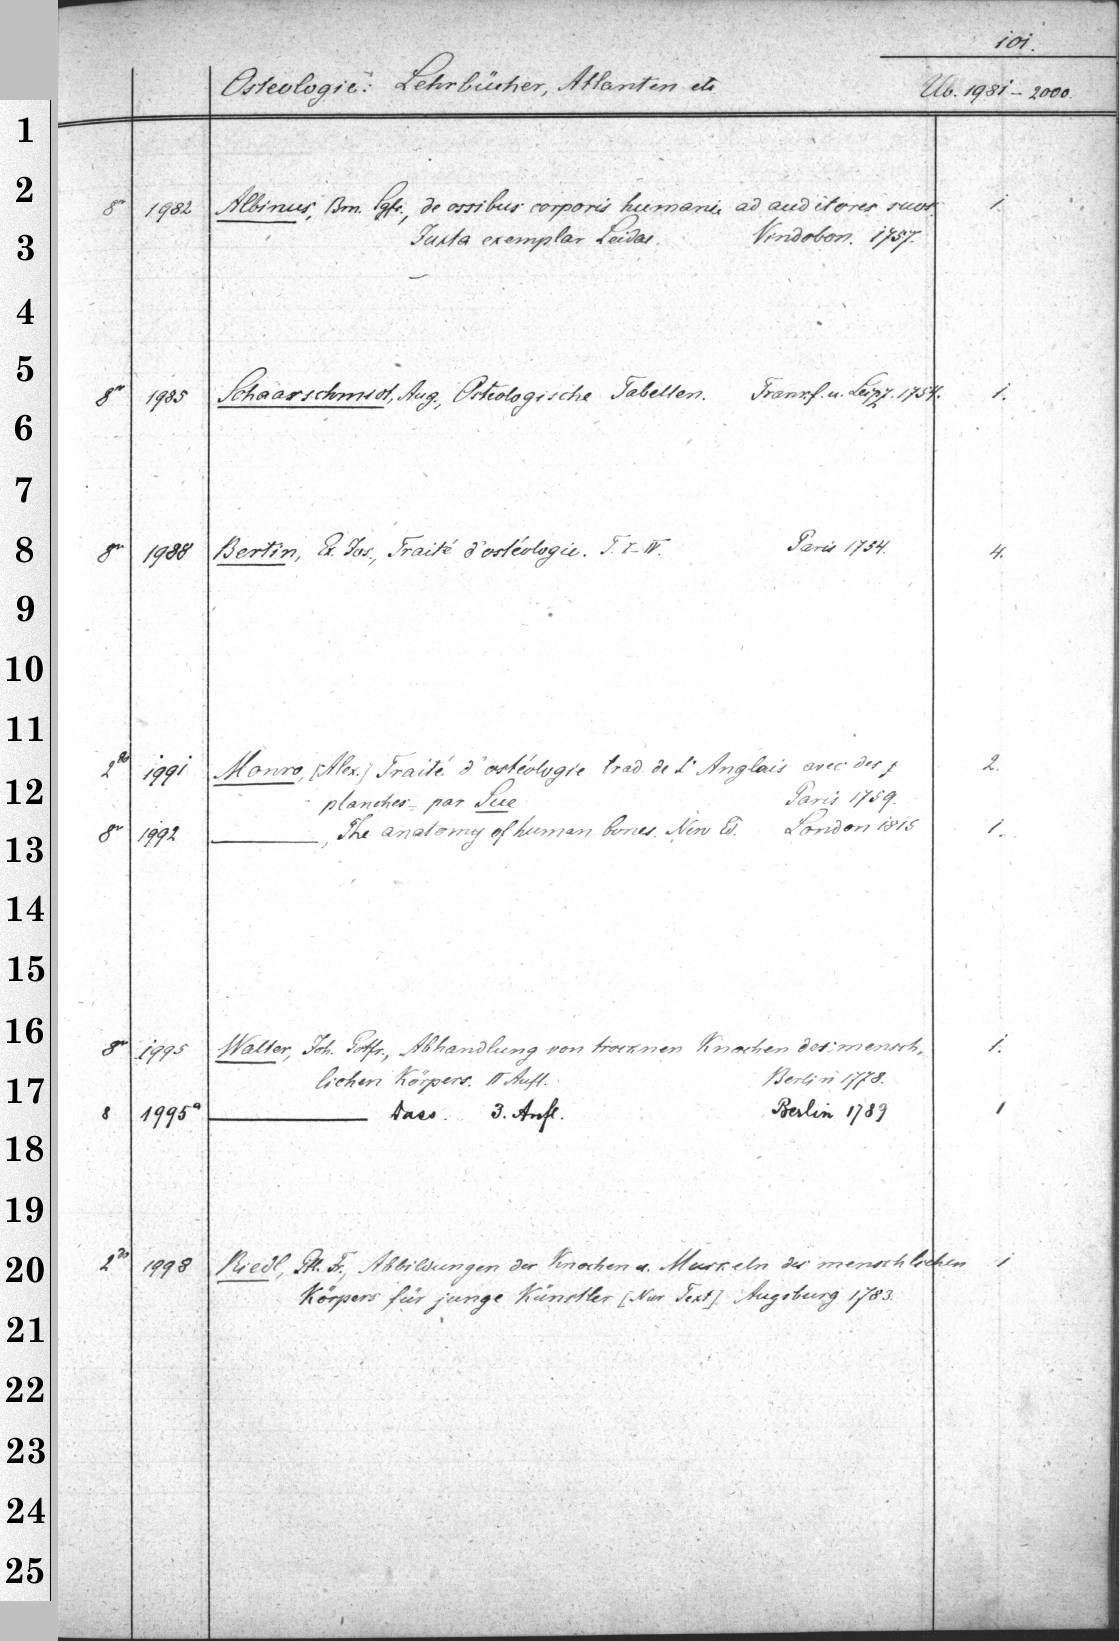 101.
Osteologie: Lehrbücher, Atlanten etc
Ub. 1981-2000.
1
2
8° 1982 Albinus, Bn. Sgfr., de ossibus corporis humani ad auditores suos 1
Juxta exemplar Leidae. Vindobon. 1757.
3
4
5
8° 1985 Schaarschmidt, Aug., Osteologische Tabellen. Frankf. u. Leipz. 1754. 1.
6
7
8
8° 1988 Bertin, Ex. Jos., Traité d'ostéologie. T. I-IV. Paris 1754. 4.
9
10
11
2° 1991 Monro, [Alex.] Traité d'ostéologie trad. de l'Anglais avec des 2.
12
planches par Sue Paris 1759.
8° 1992 ———, The anatomy of human bones. New Ed. London 1815 1.
13
14
15
16
8° 1995 Walter, Joh. Gotfr., Abhandlung von trocknen Knochen des mensch- 1.
17
lichen Körpers. II Aufl. Berlin 1778.
8 1995a ——— Dass. 3. Aufl. Berlin 1789 1
18
19
20
2° 1998 Riedl, Fr., Abbildungen der Knochen u. Muskeln des menschlichen 1
Körpers für junge Künstler [Nur Text] Augsburg 1783.
21
22
23
24
25